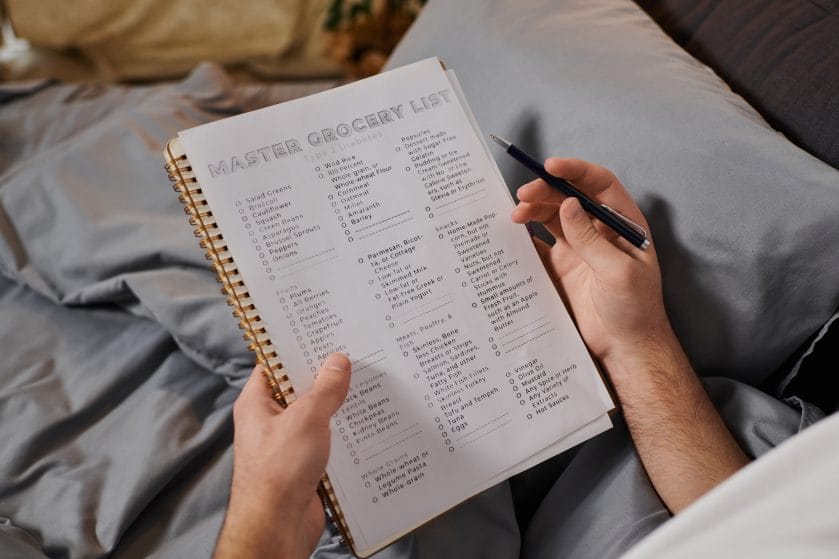 MASTER GROCERY LIST
Type 2 Diabetes
Salad Greens
Broccoli
Cauliflower
Squash
Green Beans
Asparagus
Brussel Sprouts
Peppers
Onions
Fruits
Plums
All Berries
Oranges
Peaches
Tomatoes
Grapefruit
Apples
Pears
Apricots
Legumes
Black Beans
Lentils
White Beans
Chickpeas
Kidney Beans
Pinto Beans
Whole Grains
Whole wheat or
Legume Pasta
Whole grain
Wild Rice
100 Percent
Whole grain, or
Whole-wheat Flour
Cornmeal
Oatmeal
Millet
Amaranth
Barley
Parmesan, Ricot-
ta, or Cottage
Cheese
Low-fat or
Skimmed Milk
Low-fat or
Fat-free Greek or
Plain Yogurt
Meats, Poultry, &
Fish
Skinless, Bone
less Chicken
Breasts or Strips
Salmon, Sardines,
Tuna, and other
Fatty Fish
White Fish Fillets
Skinless Turkey
Breast
Tofu and Tempeh
Tuna
Eggs
Popsicles
Dessert made
with Sugar-Free
Gelatin
Pudding or Ice
Cream Sweetened
with No- or Low
Calorie Sweeten-
ers, such as
Stevia or Erythritol
Snacks
Home-Made Pop-
corn, but not
Premade or
Sweetened
Varieties
Nuts, but not
Sweetened
Carrot or Celery
Sticks with
Hummus
Small amounts of
Fresh Fruit,
such as an Apple
with Almond
Butter
Vinegar
Olive Oil
Mustard
Any Spice or Herb
Any Variety of
Extracts
Hot Sauces